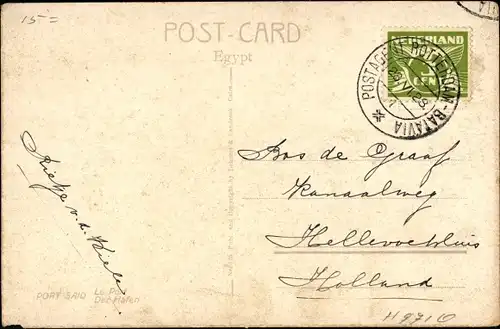 15 =
POST-CARD
Egypt
NEDERLAND
CENT
POSTAGENT ROTTERDAM-BATAVIA
Rietje v. d.
Bos de Graaf
Kanaalweg
Hellevoetsluis
Holland
PORT SAID
Le Port
Der Hafen